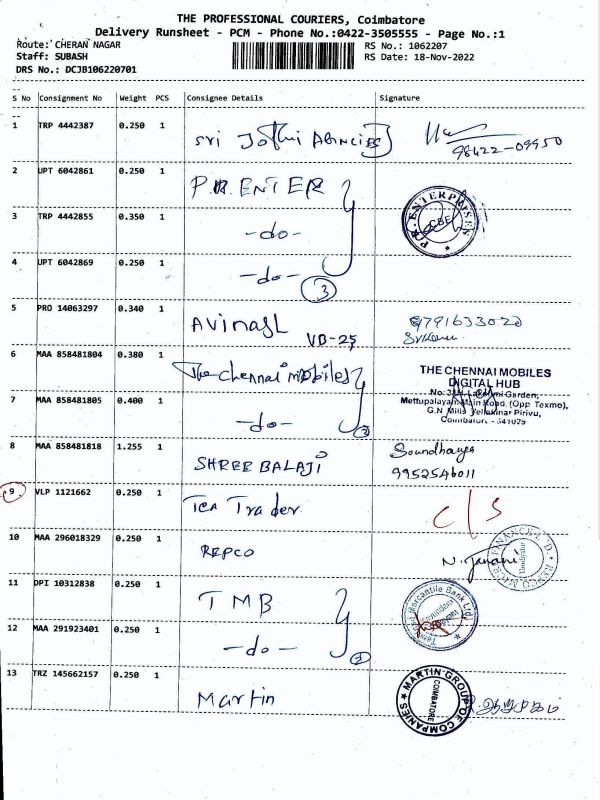 THE PROFESSIONAL COURIERS, Coimbatore
Delivery Runsheet - PCM - Phone No.:0422-3505555 - Page No.:1
Route: CHERAN NAGAR
RS No.: 1062207
Staff: SUBASH
RS Date: 18-Nov-2022
DRS No.: DCJB106220701
S No Consignment No Weight PCS Consignee Details Signature
1 TRP 4442387 0.250 1 Sri Jothi Agencies 98422-09950
2 UPT 6042861 0.250 1 P.R. ENTER
3 TRP 4442855 0.350 1 -do- P.R. ENTERPRISES CBE
4 UPT 6042869 0.250 1 -do- 3
5 PRO 14063297 0.340 1 Avinash VB-25 9791633020
6 MAA 858481804 0.380 1 The Chennai mobiles
THE CHENNAI MOBILES
DIGITAL HUB
Garden,
Mettupalayam Main Road, (Opp. Texmo),
G.N Mills Vellakinar Pirivu,
Coimbatore - 641029
7 MAA 858481805 0.400 1 -do- 2
8 MAA 858481818 1.255 1 SHREE BALAJI Soundharya
9952546011
9 VLP 1121662 0.250 1 Tea Trader C/S
10 MAA 296018329 0.250 1 REPCO N. Janani
11 DPI 10312838 0.250 1 TMB Tamilnad Mercantile Bank Ltd
12 MAA 291923401 0.250 1 -do- 2
13 TRZ 145662157 0.250 1 Martin MARTIN GROUP OF COMPANIES COIMBATORE